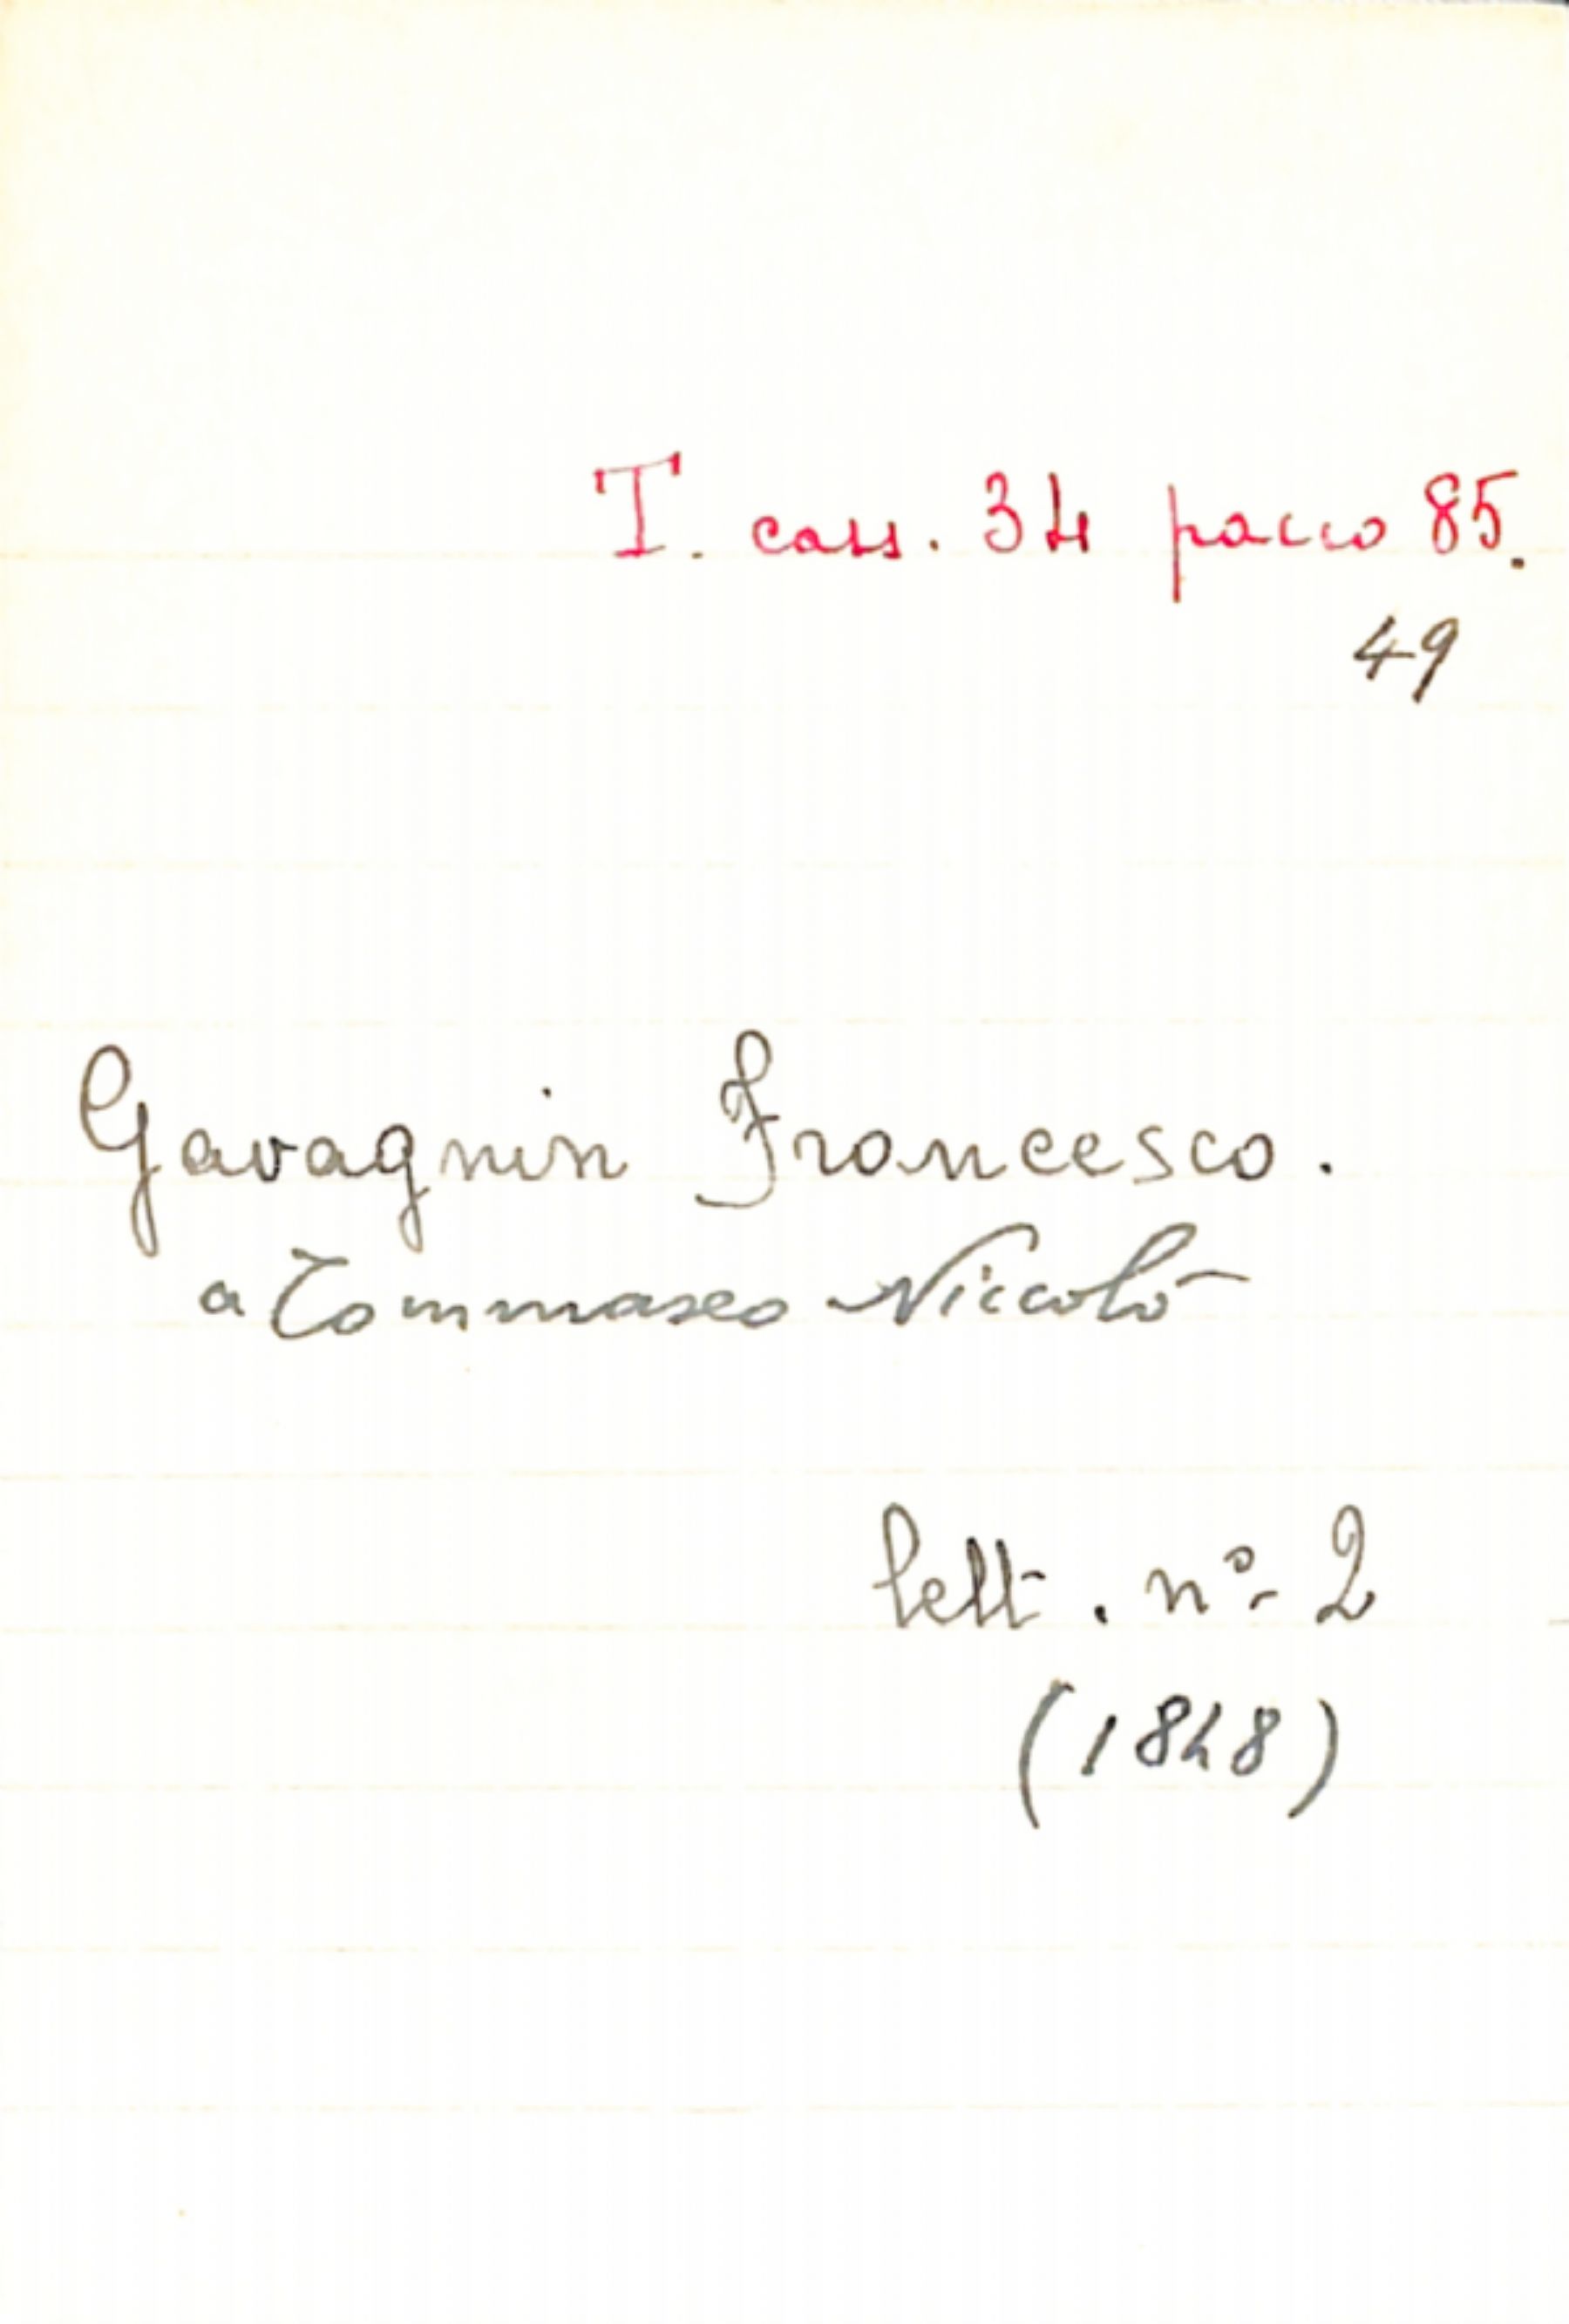 T. cass. 34 pacco 85.
49
Gavagnin Francesco.
a Tommaseo Niccolò
lett. nº 2
(1848)